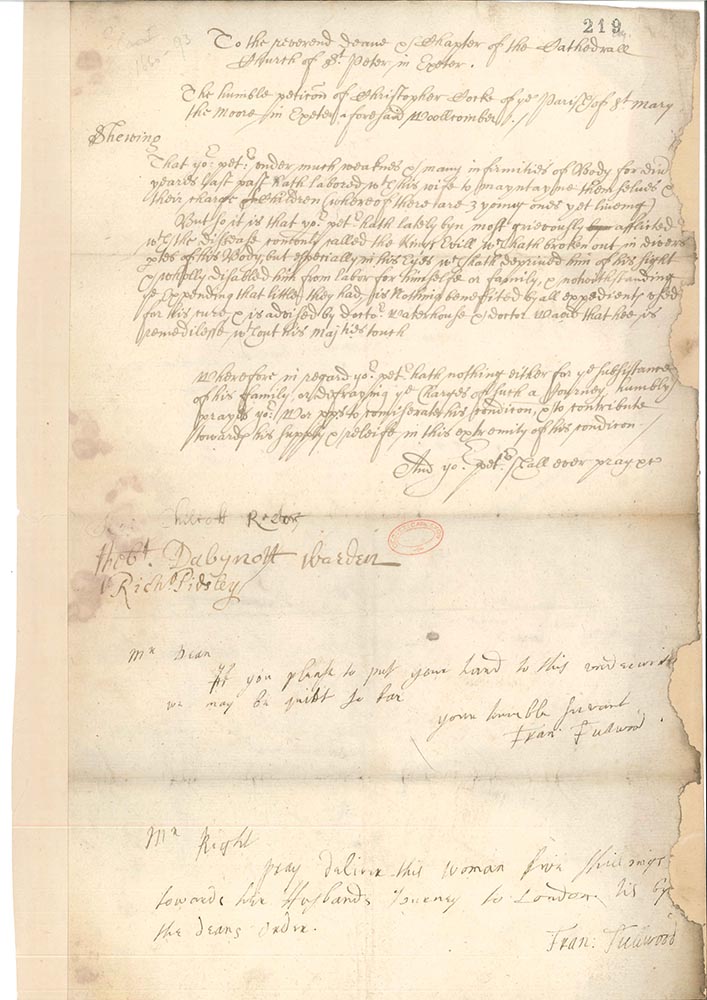 219
To the reverend Deane & Chapter of the Cathedrall
Church of St Peter in Exeter.
The humble peticon of Christopher Cocke of ye Parish of St Mary
the Moore in Exeter aforesaid Woollcomber
Shewing
That yor petr under much weaknes & many infirmities of Body for divrs
yeares last past hath labored wth his wife to mayntayne themselves &
their charge of Children (whereof there are 3 yong ones yet liveing)
But so it is that yor petr hath lately byn most grievously afflicted
wth the disease comonly called the Kings Evill wch hath broken out in divers
ptes of his Body, but especially in his Eyes wch hath deprived him of his sight
& wholly disabled him from labor for himselfe or family, & notwithstanding
ye Expending that little they had, is Nothing benefitted by all expedients used
for his cure & is advised by doctor Waterhouse & doctor that hee is
remedilesse wthout his majties touch
Wherefore in regard yor petr hath nothing either for ye subsistance
of his family, or defraying ye Charges of such a Journey, humbly
prayes yor Worpps to comiserate his condicon, & to contribute
towards his supply & releife in this extremity of his condicon
And yor petr shall ever pray &c
Chilcott Rector
Dabynott warden
Richd Pidsley
Mr Dean
If you please to put your hand to this underwrit
we may be quitt so far
your humble servant
Fran: Fullwood
Mr Right
pray deliver this woman five shillings
towards her Husbands Journey to London tis by
the Deans Order.
Fran: Fullwood